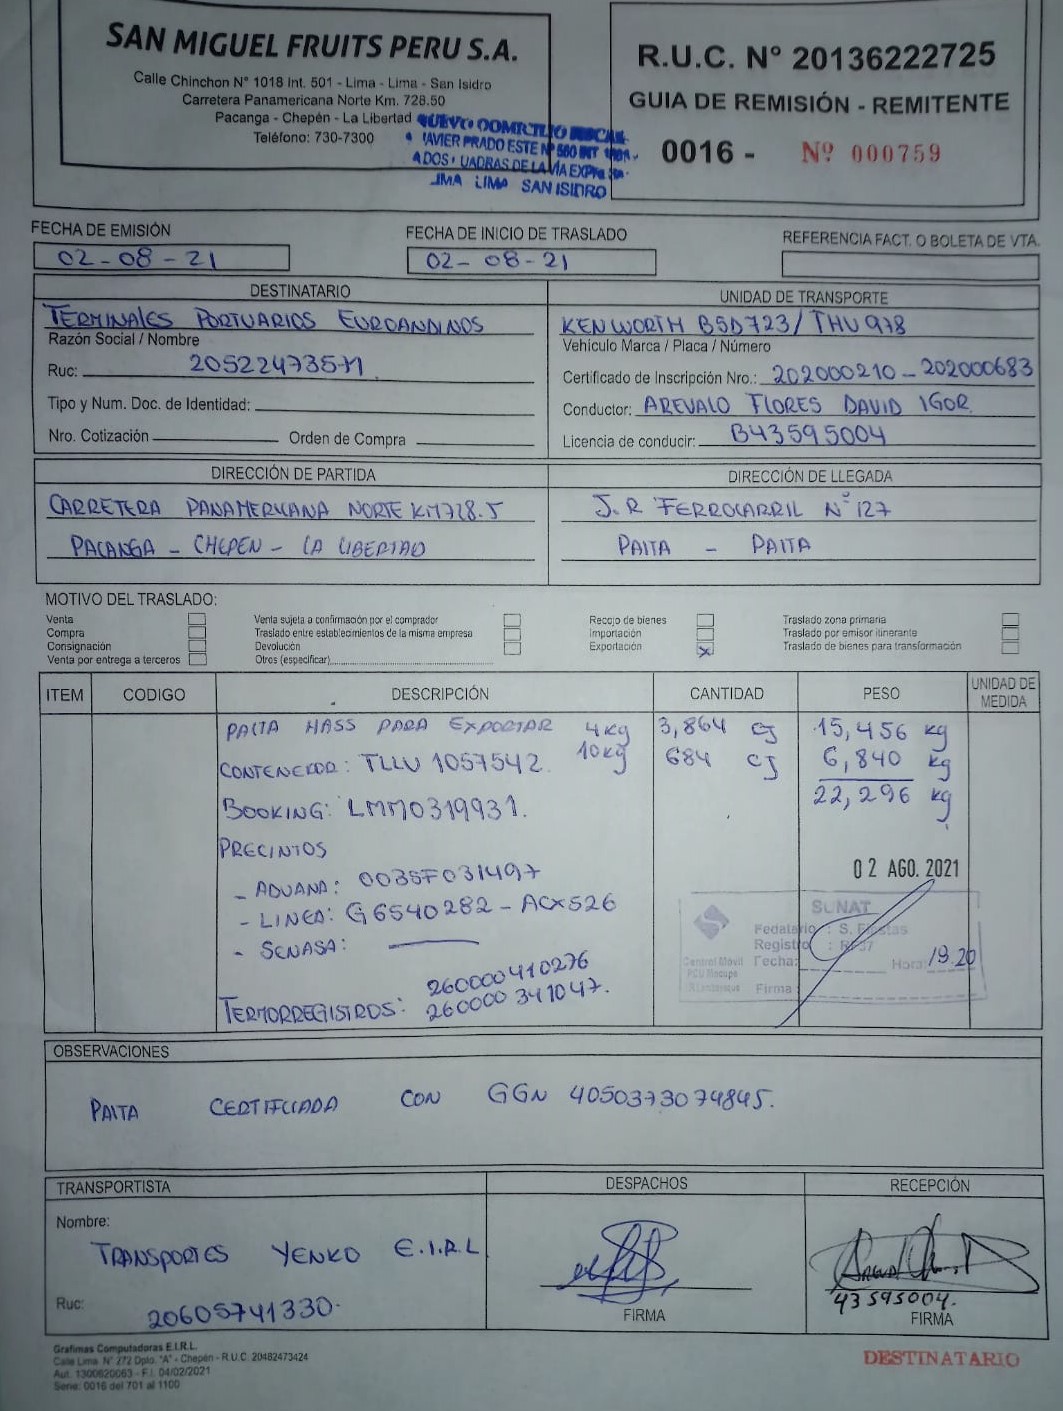 SAN MIGUEL FRUITS PERU S.A.
Calle Chinchon N° 1018 Int. 501 - Lima - Lima - San Isidro
Carretera Panamericana Norte Km. 728.50
Pacanga - Chepén - La Libertad
Teléfono: 730-7300
NUEVO DOMICILIO FISCAL
JAVIER PRADO ESTE N° 560 INT
A DOS CUADRAS DE LA VIA EXPRESA
LIMA LIMA SAN ISIDRO
R.U.C. N° 20136222725
GUIA DE REMISIÓN - REMITENTE
0016 - Nº 000759
FECHA DE EMISIÓN
02-08-21
FECHA DE INICIO DE TRASLADO
02-08-21
REFERENCIA FACT. O BOLETA DE VTA.
DESTINATARIO
TERMINALES PORTUARIOS EUROANDINOS
Razón Social / Nombre
Ruc: 20522473571
Tipo y Num. Doc. de Identidad:
Nro. Cotización Orden de Compra
UNIDAD DE TRANSPORTE
KENWORTH B5D723/THU978
Vehículo Marca / Placa / Número
Certificado de Inscripción Nro.: 202000210 - 202000683
Conductor: AREVALO FLORES DAVID IGOR
Licencia de conducir: B43595004
DIRECCIÓN DE PARTIDA
CARRETERA PANAMERICANA NORTE KM728.5
PACANGA - CHEPEN - LA LIBERTAD
DIRECCIÓN DE LLEGADA
J.R FERROCARRIL N° 127
PAITA - PAITA
MOTIVO DEL TRASLADO:
Venta
Compra
Consignación
Venta por entrega a terceros
Venta sujeta a confirmación por el comprador
Traslado entre establecimientos de la misma empresa
Devolución
Otros (especificar)
Recojo de bienes
Importación
Exportación X
Traslado zona primaria
Traslado por emisor itinerante
Traslado de bienes para transformación
ITEM CODIGO DESCRIPCIÓN CANTIDAD PESO UNIDAD DE MEDIDA
PALTA HASS PARA EXPORTAR 4kg 3,864 CJ 15,456 kg
10kg 684 CJ 6,840 kg
CONTENEDOR: TLLU 1057542.
22,296 kg
BOOKING: LMM0319931.
PRECINTOS
- ADUANA: 0035F031497
- LINEA: G6540282 - ACX526
- SENASA:
TERMORREGISTROS: 260000410276
260000341047.
02 AGO. 2021
SUNAT
Fedatario : S. Fiestas
Registro :
Control Móvil
Fecha:
Hora: 19.20
Firma
OBSERVACIONES
PALTA CERTIFICADA CON GGN 4050373074845.
TRANSPORTISTA
Nombre:
TRANSPORTES YENKO E.I.R.L
Ruc:
20605741330.
DESPACHOS
FIRMA
RECEPCIÓN
43595004.
FIRMA
Grafimas Computadoras E.I.R.L.
Calle Lima N° 272 Dpto. "A" - Chepén - R.U.C. 20482473424
Aut. 1300620063 - F.I. 04/02/2021
Serie: 0016 del 701 al 1100
DESTINATARIO